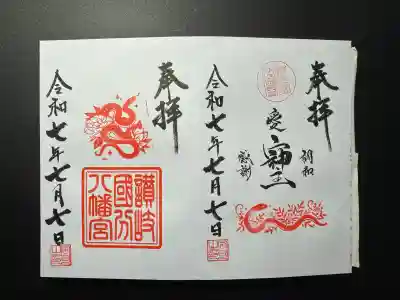 奉拝
調和
愛
感謝
令和七年七月七日
奉拝
讃岐
國分
八幡宮
令和七年七月七日